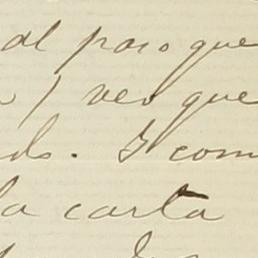 al paso que
) veo que
do. Y com
la carta